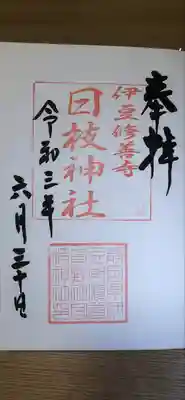 奉拝
伊豆修善寺
日枝神社
令和三年
六月三十日